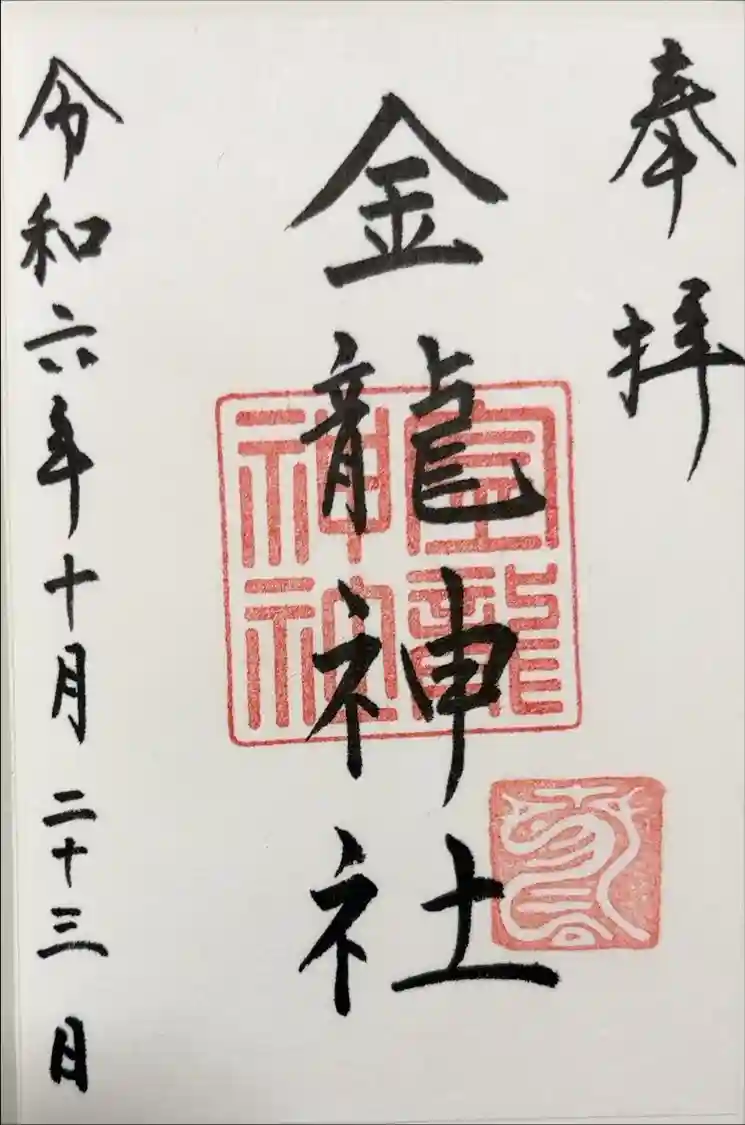 奉拝
金龍神社
金龍神社
令和六年十月二十三日